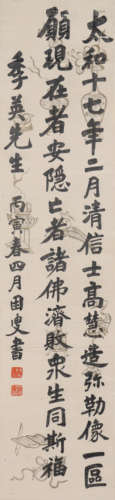 太和十七年二月清信士高慧造弥勒像一區
願現在者安隱亡者諸佛濟敗眾生同斯福
季英先生 丙寅春四月田叟書